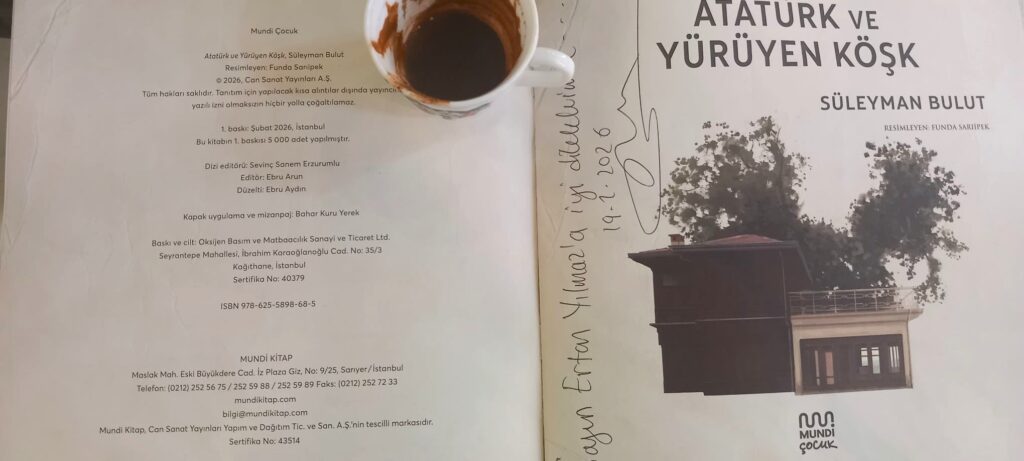 Mundi Çocuk
Atatürk ve Yürüyen Köşk, Süleyman Bulut
Resimleyen: Funda Sarıipek
© 2026, Can Sanat Yayınları A.Ş.
Tüm hakları saklıdır. Tanıtım için yapılacak kısa alıntılar dışında yayıncı
yazılı izni olmaksızın hiçbir yolla çoğaltılamaz.
1. baskı: Şubat 2026, İstanbul
Bu kitabın 1. baskısı 5 000 adet yapılmıştır.
Dizi editörü: Sevinç Sanem Erzurumlu
Editör: Ebru Arun
Düzelti: Ebru Aydın
Kapak uygulama ve mizanpaj: Bahar Kuru Yerek
Baskı ve cilt: Oksijen Basım ve Matbaacılık Sanayi ve Ticaret Ltd.
Seyrantepe Mahallesi, İbrahim Karaoğlanoğlu Cad. No: 35/3
Kağıthane, İstanbul
Sertifika No: 40379
ISBN 978-625-5898-68-5
MUNDİ KİTAP
Maslak Mah. Eski Büyükdere Cad. İz Plaza Giz, No: 9/25, Sarıyer/İstanbul
Telefon: (0212) 252 56 75 / 252 59 88 / 252 59 89 Faks: (0212) 252 72 33
mundikitap.com
bilgi@mundikitap.com
Mundi Kitap, Can Sanat Yayınları Yapım ve Dağıtım Tic. ve San. A.Ş.'nin tescilli markasıdır.
Sertifika No: 43514
Sayın Ertan Yılmaz'a iyi dileklerimle...
19-2-2026
ATATÜRK VE
YÜRÜYEN KÖŞK
SÜLEYMAN BULUT
RESİMLEYEN: FUNDA SARIİPEK
MUNDİ
ÇOCUK